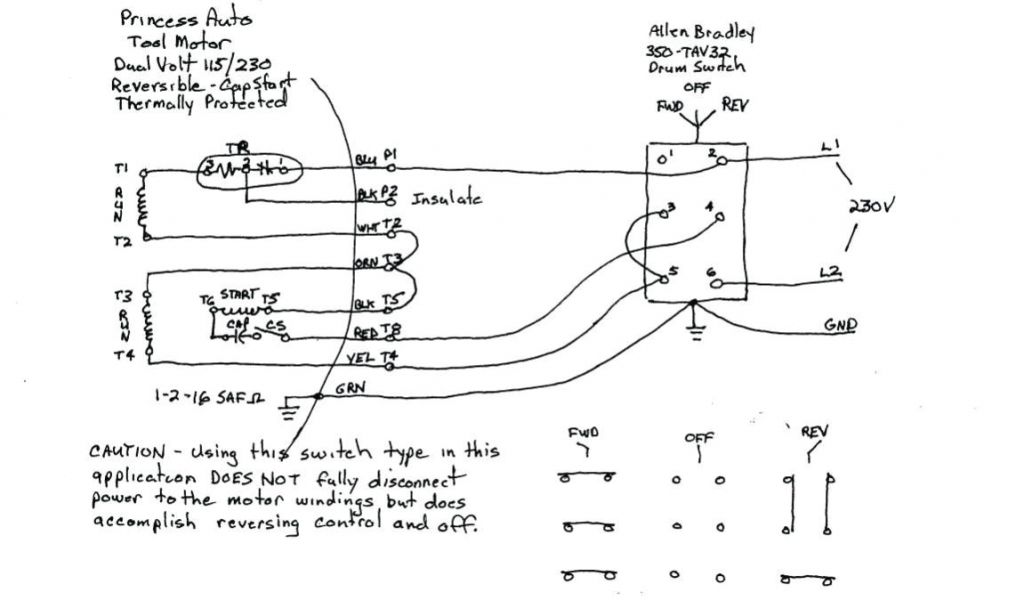 Princess Auto
Tool Motor
Dual Volt 115/230
Reversible - Cap Start
Thermally Protected
Allen Bradley
350-TAV32
Drum Switch
OFF
FWD REV
TP
3 2 1
T1
BLU P1
BLK P2 Insulate
RUN
T2
WHT T2
ORN T3
T3
T6 START T5
BLK T5
CAP CS
RED T8
RUN
T4
YEL T4
GRN
1 2
3 4
5 6
L1
230V
L2
GND
1-2-16 SAF Ω
CAUTION - Using this switch type in this
application DOES NOT fully disconnect
power to the motor windings but does
accomplish reversing control and off.
FWD OFF REV